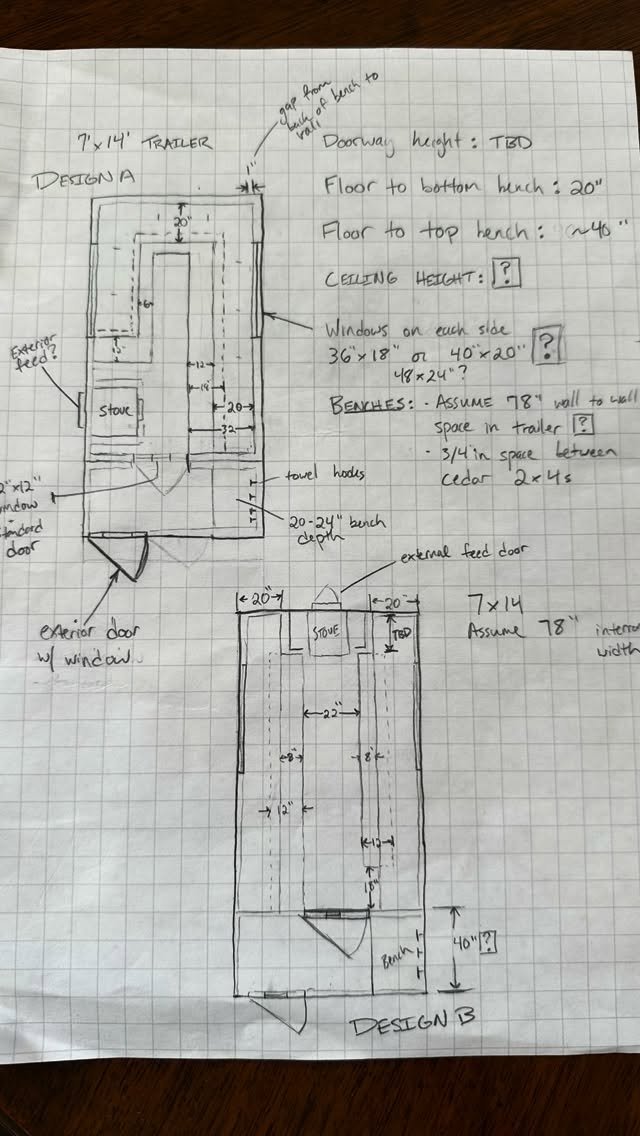 gap from
back of bench to
wall
7'x14' TRAILER
1"
DESIGN A
Doorway height: TBD
Floor to bottom bench: 20"
Floor to top bench: ~40"
CEILING HEIGHT: ?
Windows on each side
36"x18" or 40"x20" ?
48x24"?
BENCHES: - ASSUME 78" wall to wall
space in trailer ?
- 3/4 in space between
cedar 2x4s
20"
Exterior
feed?
Stove
12
18"
20
32
towel hooks
20-24" bench
depth
2"x12"
window
standard
door
exterior door
w/ window
external feed door
20"
20"
7x14
Assume 78" interna
width
STOVE
TBD
22"
8"
8"
12"
12
18"
40" ?
Bench
DESIGN B